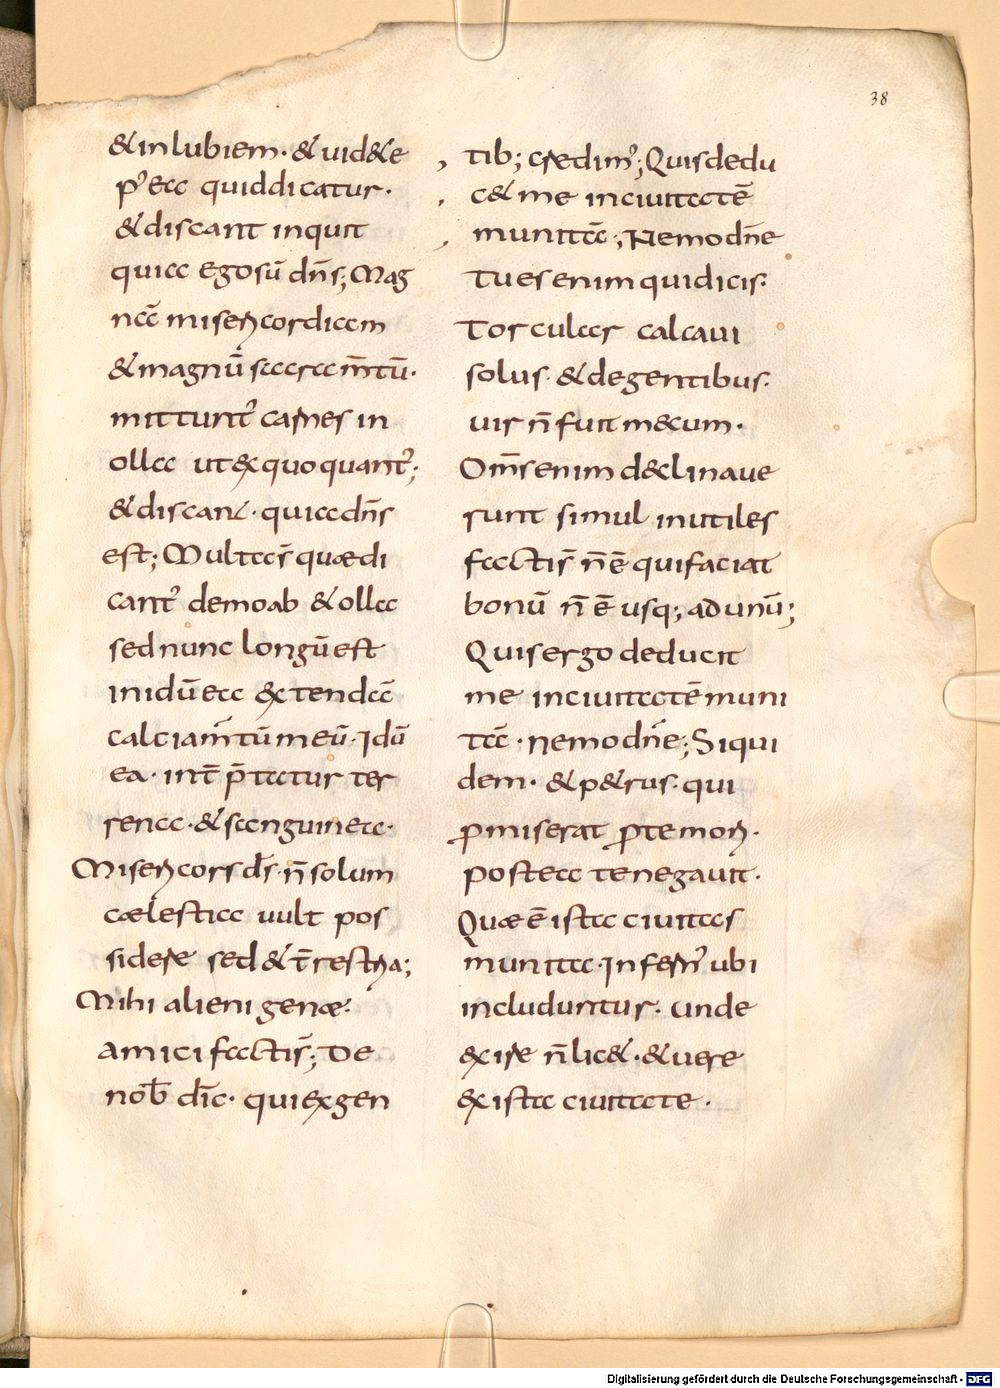 38
& in lubiem· & uid&e
p' ea quid dicatur·
& discant inquit
quia ego sū dn̄s; Mag
nā misericordiam
& magnū sacram̄tū·
mittunt' carnes in
olla ut & quo quant';
& discant· quia dn̄s
est; Multas quae di
cant' de moab & olla
sed nunc longū est
in idūea extendā
calciam̄tū meū· Idū
ea· int̄ p̄tatur ter
rena· & sanguinea·
Misericors d̄s· n̄ solum
caelestia uult pos
sidere sed & t̄restria;
Mihi alienigenae·
amici facti s̄; De
nob̄ dīc· qui ex gen
tib; credim'; Quis dedu
c& me in ciuitatē
munitā; Nemo dn̄e
Tu es enim qui dicis·
Torcular calcaui
solus· & de gentibus·
uir n̄ fuit mecum·
Om̄s enim declinaue
runt simul inutiles
facti s̄ n̄ ē qui faciat
bonū n̄ ē usq; ad unū;
Quis ergo deducit
me in ciuitatē muni
tā· nemo dn̄e; Siqui
dem· & p&rus· qui
promiserat pro te mori·
postea te negauit·
Quae ē ista ciuitas
munita· Infern' ubi
includuntur· unde
exire n̄ lic&· & uere
ex ista ciuitate·
Digitalisierung gefördert durch die Deutsche Forschungsgemeinschaft - DFG